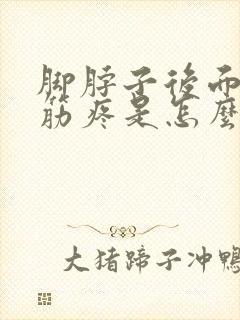 脚脖子後面
筋疼是怎麼
大猪蹄子冲鸭